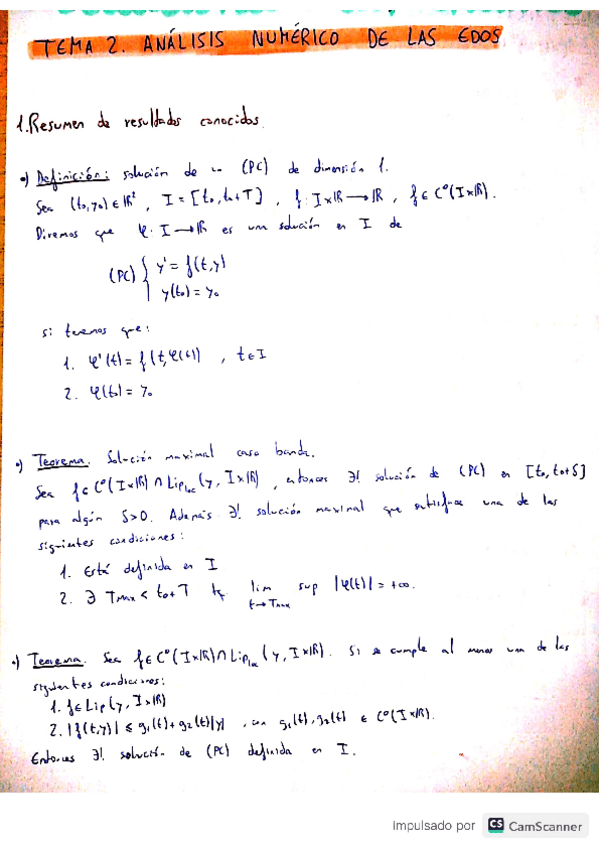 TEMA 2. ANÁLISIS NUMÉRICO DE LAS EDOS
1. Resumen de resultados conocidos.
•) Definición: solución de un (PC) de dimensión 1.
Sea (t₀,y₀) ∈ ℝ², I = [t₀, t₀+T], f: I×ℝ → ℝ, f ∈ C⁰(I×ℝ).
Diremos que φ: I → ℝ es una solución en I de
(PC) { y' = f(t,y)
y(t₀) = y₀
si tenemos que:
1. φ'(t) = f(t,φ(t)), t ∈ I
2. φ(t₀) = y₀
•) Teorema. Solución maximal caso banda.
Sea f ∈ C⁰(I×ℝ) ∩ Lip_loc(y, I×ℝ), entonces ∃! solución de (PC) en [t₀, t₀+δ]
para algún δ>0. Además ∃! solución maximal que satisface una de las
siguientes condiciones:
1. Está definida en I
2. ∃ Tmax < t₀+T tq lim sup |φ(t)| = +∞.
t→Tmax
•) Teorema. Sea f ∈ C⁰(I×ℝ) ∩ Lip_loc(y, I×ℝ). Si se cumple al menos una de las
siguientes condiciones:
1. f ∈ Lip(y, I×ℝ)
2. |f(t,y)| ≤ g₁(t)+g₂(t)|y|, con g₁(t), g₂(t) ∈ C⁰(I×ℝ).
Entonces ∃! solución de (PC) definida en I.
Impulsado por CS CamScanner